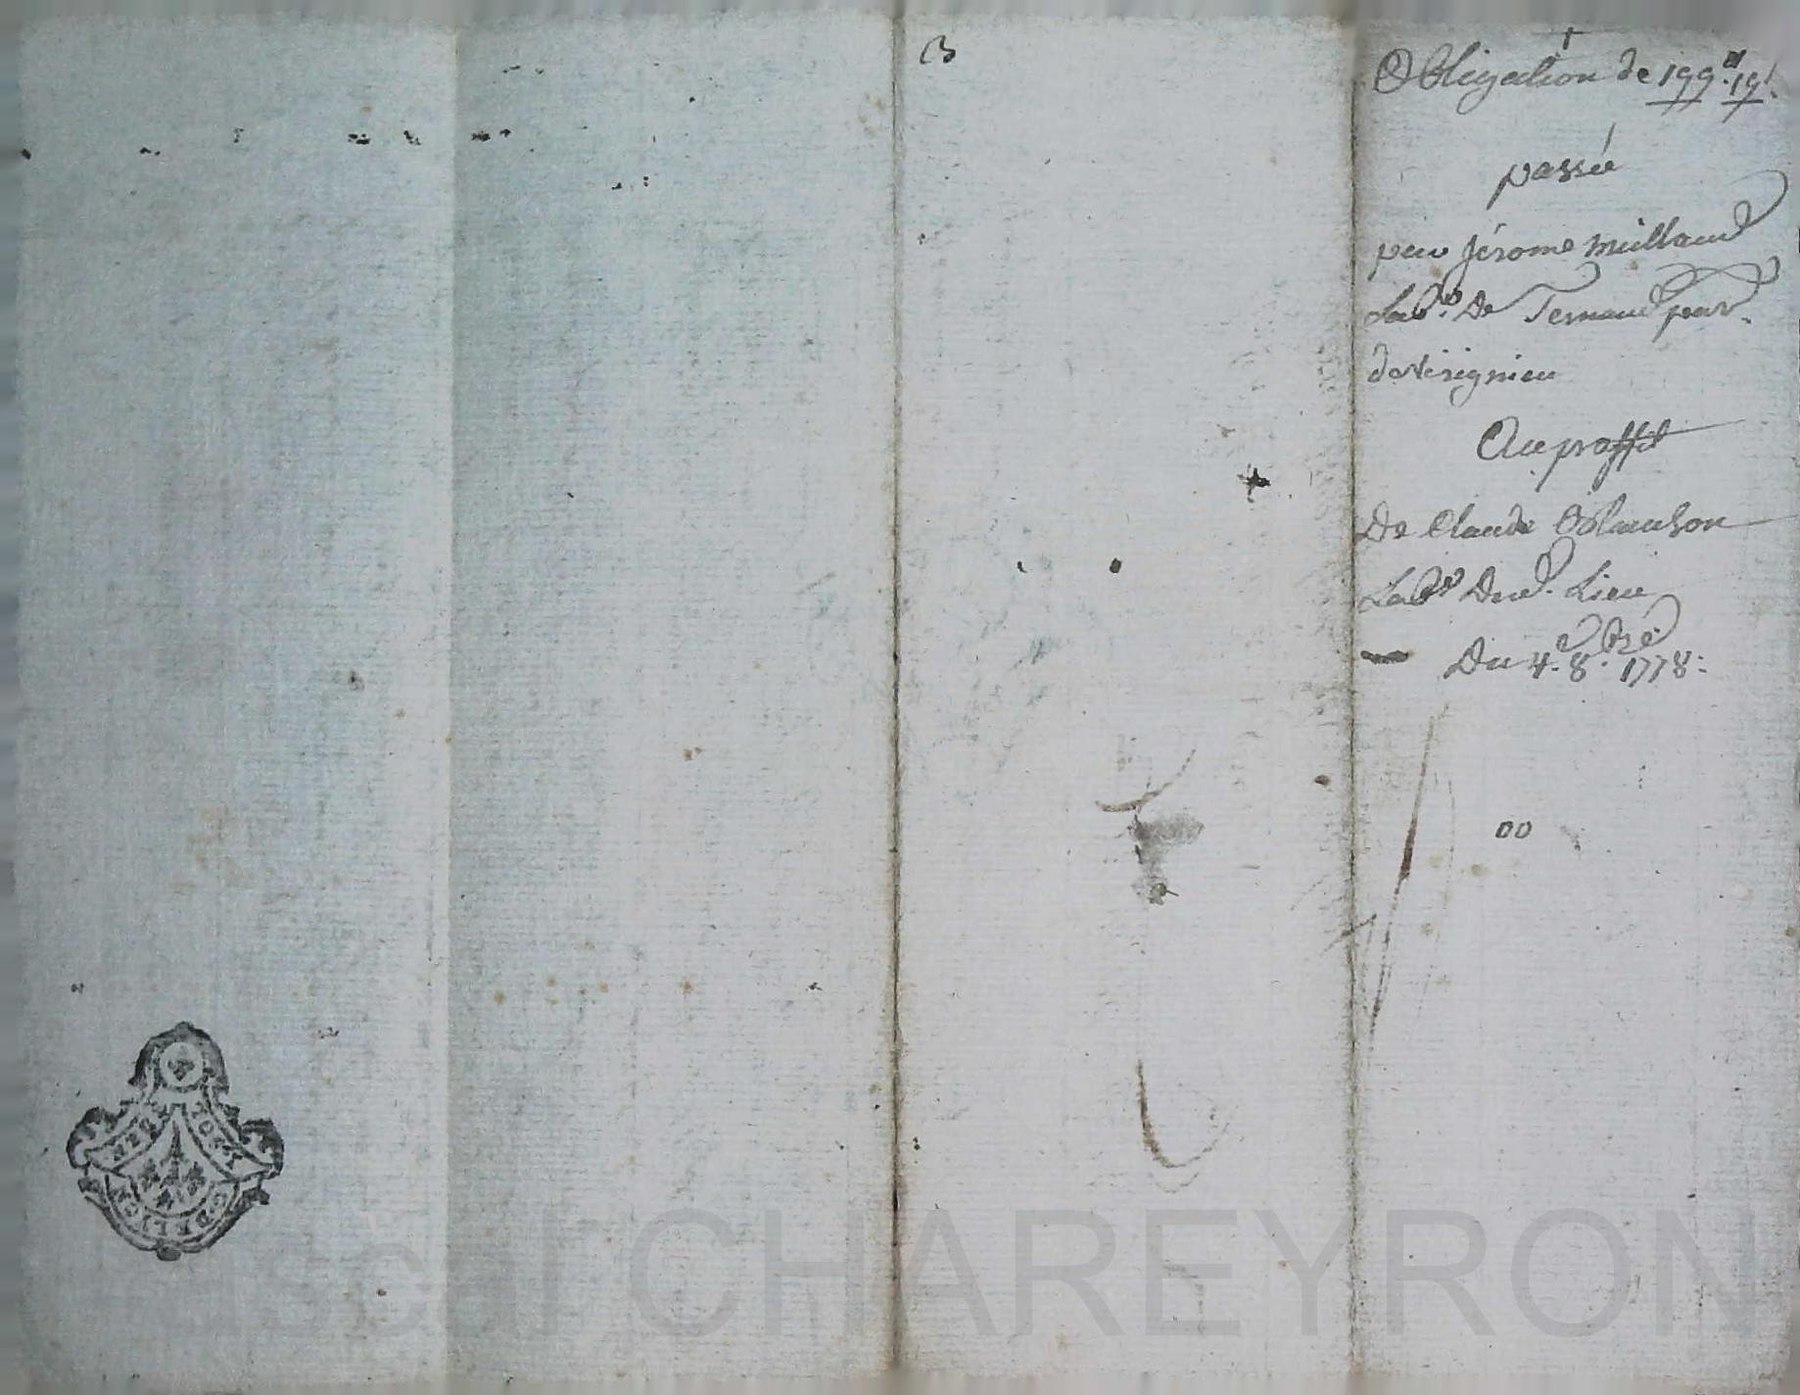 B
Obligation de 199.# 19.s
passée
par Jérome Millaud
Lab.r De Ternaud par.
de virignieu
Au proffit
De Claude Blanchon
Lab.r Dud. Lieu
Du 4. 8.bre 1778.
00
CHAREYRON